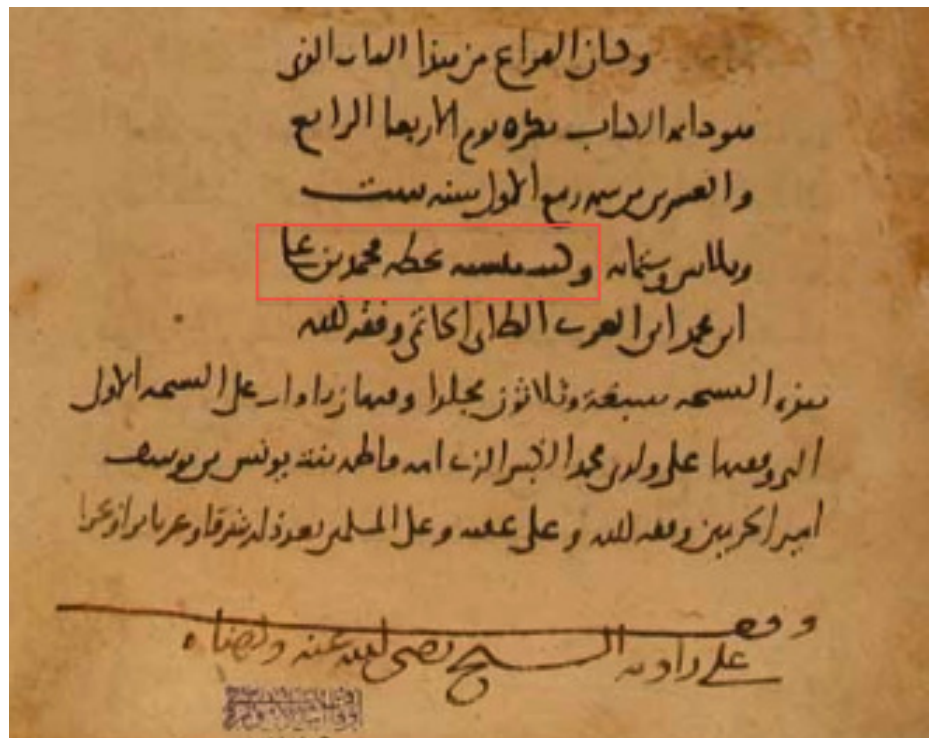 وكان الفراغ من هذا الباب الذي
هو خاتمة الكتاب بكرة يوم الاربعا الرابع
والعشرين من شهر ربيع الاول سنه ست
وثلاثين وستمائة وكتب منشئه بخطه محمد بن علي
ابن محمد ابن العربي الطائي الحاتمي وفقه الله
هذه النسخة سبعة وثلاثون مجلدا وفيها زيادات على النسخة الاولى
التي وقفتها على ولدي محمد الكبير الذي امه فاطمة بنت يونس بن يوسف
امير الحرمين وفقه الله وعلى عقبه وعلى المسلمين بعد ذلك شرقا وغربا برا وبحرا
وقف
على زاوية الشيخ رضي الله عنه وارضاه